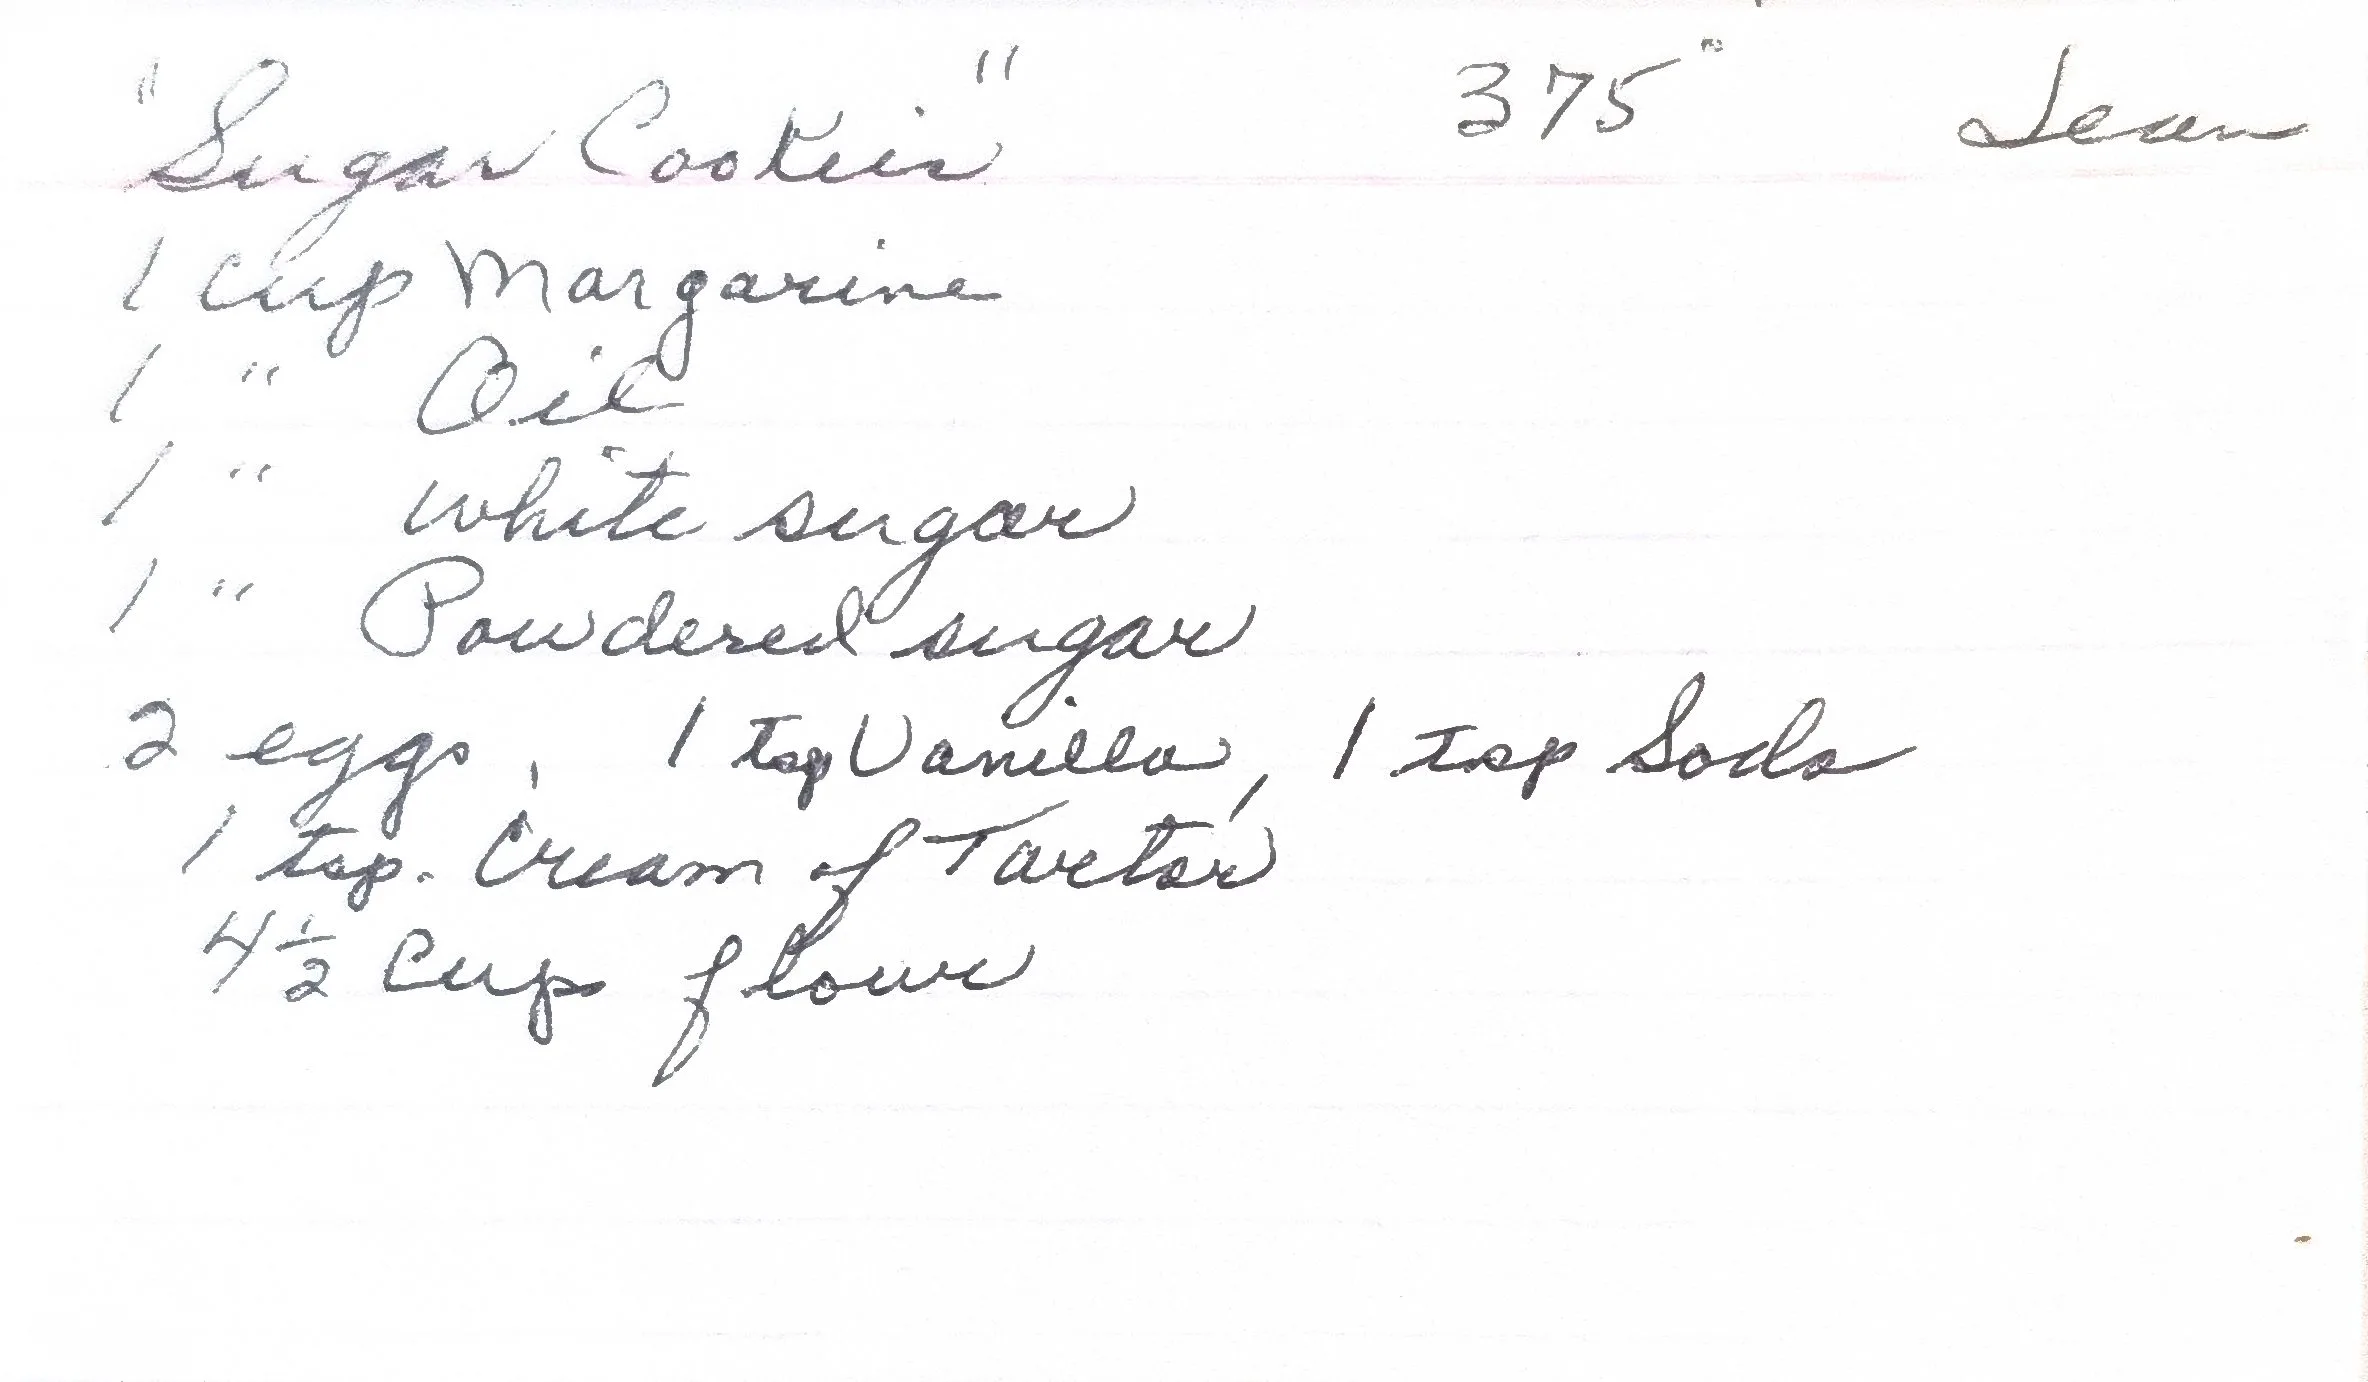 "Sugar Cookies" 375° Jean
1 cup Margarine
1 " Oil
1 " white sugar
1 " Powdered sugar
2 eggs, 1 tsp Vanilla, 1 tsp Soda
1 tsp. Cream of Tartar
4 1/2 Cups flour